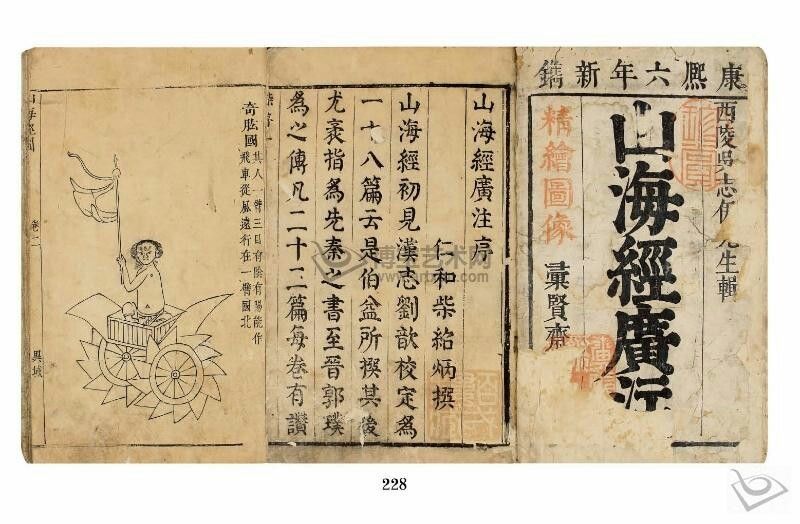 康熙六年新鐫
西陵吳志伊先生輯
山海經廣注
精繪圖像
彙賢齋
山海經廣注序
仁和柴紹炳撰
山海經初見漢志劉歆校定為
一十八篇云是伯益所撰其後
尤袤指為先秦之書至晉郭璞
為之傳凡二十三篇每卷有讚
奇肱國
其人一臂三目有陰有陽能作
飛車從風遠行在一臂國北
異域
228